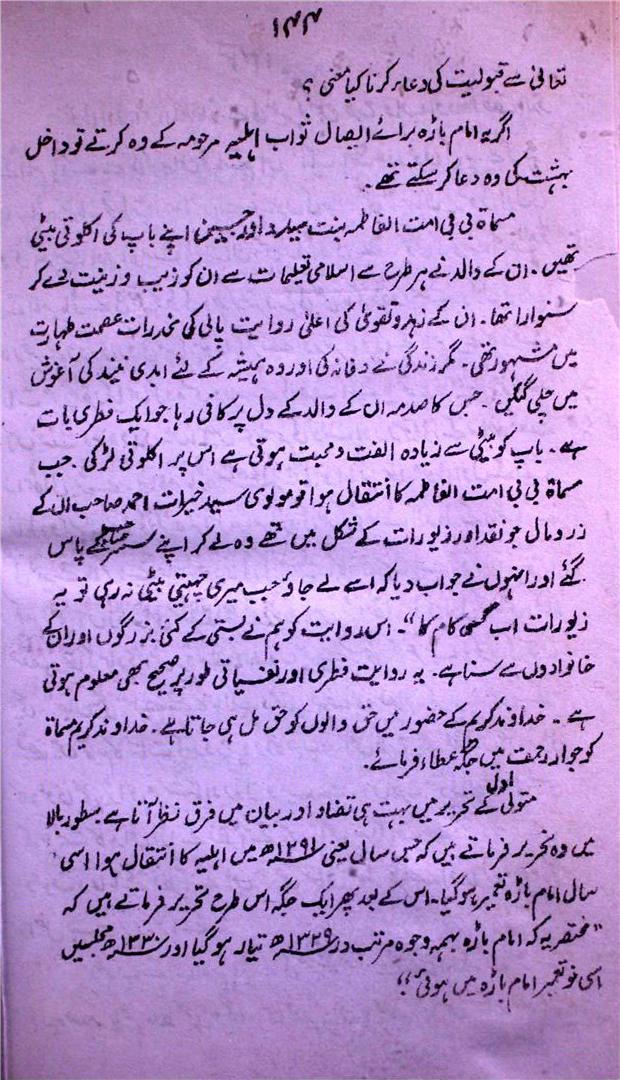 ۱۴۴
تعالیٰ سے قبولیت کی دعاء کرنا کیا معنی ؟
اگر یہ امام باڑہ برائے ایصال ثواب اہلیہ مرحومہ کے وہ کرتے تو داخل
بہشت کی وہ دعا کر سکتے تھے ۔
مسماۃ بی بی امت الفاطمہ بنت سید داؤد حسین اپنے باپ کی اکلوتی بیٹی
تھیں ۔ ان کے والد نے ہر طرح سے اسلامی تعلیمات سے ان کو زیب و زینت دے کر
سنوارا تھا ۔ ان کے زہد و تقویٰ کی اعلیٰ روایت پالی کی مخدرات عصمت طہارت
میں مشہور تھی ۔ مگر زندگی نے وفا نہ کی اور وہ ہمیشہ کے لئے ابدی نیند کی آغوش
میں چلی گئیں ۔ جس کا صدمہ ان کے والد کے دل پر کافی رہا جو ایک فطری بات
ہے ۔ باپ کو بیٹی سے زیادہ الفت و محبت ہوتی ہے اس پر اکلوتی لڑکی ۔ جب
مسماۃ بی بی امت الفاطمہ کا انتقال ہوا تو مولوی سید خیرات احمد صاحب ان کے
زر و مال جو نقد اور زیورات کے شکل میں تھے وہ لے کر اپنے سسر کے پاس
گئے اور انہوں نے جواب دیا کہ اسے لے جاؤ جب میری چہیتی بیٹی نہ رہی تو یہ
زیورات اب کس کام کا “ ۔ اس روایت کو ہم نے بستی کے کئی بزرگوں اور ان کے
خانوادوں سے سنا ہے ۔ یہ روایت فطری اور نفسیاتی طور پر صحیح بھی معلوم ہوتی
ہے ۔ خداوند کریم کے حضور میں حق والوں کو حق مل ہی جاتا ہے ۔ خداوند کریم مسماۃ
کو جوار رحمت میں جگہ عطاء فرمائے ۔
متولی اول کے تحریر میں بہت ہی تضاد اور بیان میں فرق نظر آتا ہے سطور بالا
میں وہ تحریر فرماتے ہیں کہ جس سال یعنی ھ میں اہلیہ کا انتقال ہوا اسی
سال امام باڑہ تعمیر ہو گیا ۔ اس کے بعد پھر ایک جگہ اس طرح تحریر فرماتے ہیں کہ
” مختصر یہ کہ امام باڑہ بہمہ وجوہ مرتب در ۱۳۲۹ھ تیار ہو گیا اور ۱۳۳۰ھ مجلسیں
اسی نو تعمیر امام باڑہ میں ہوئی “